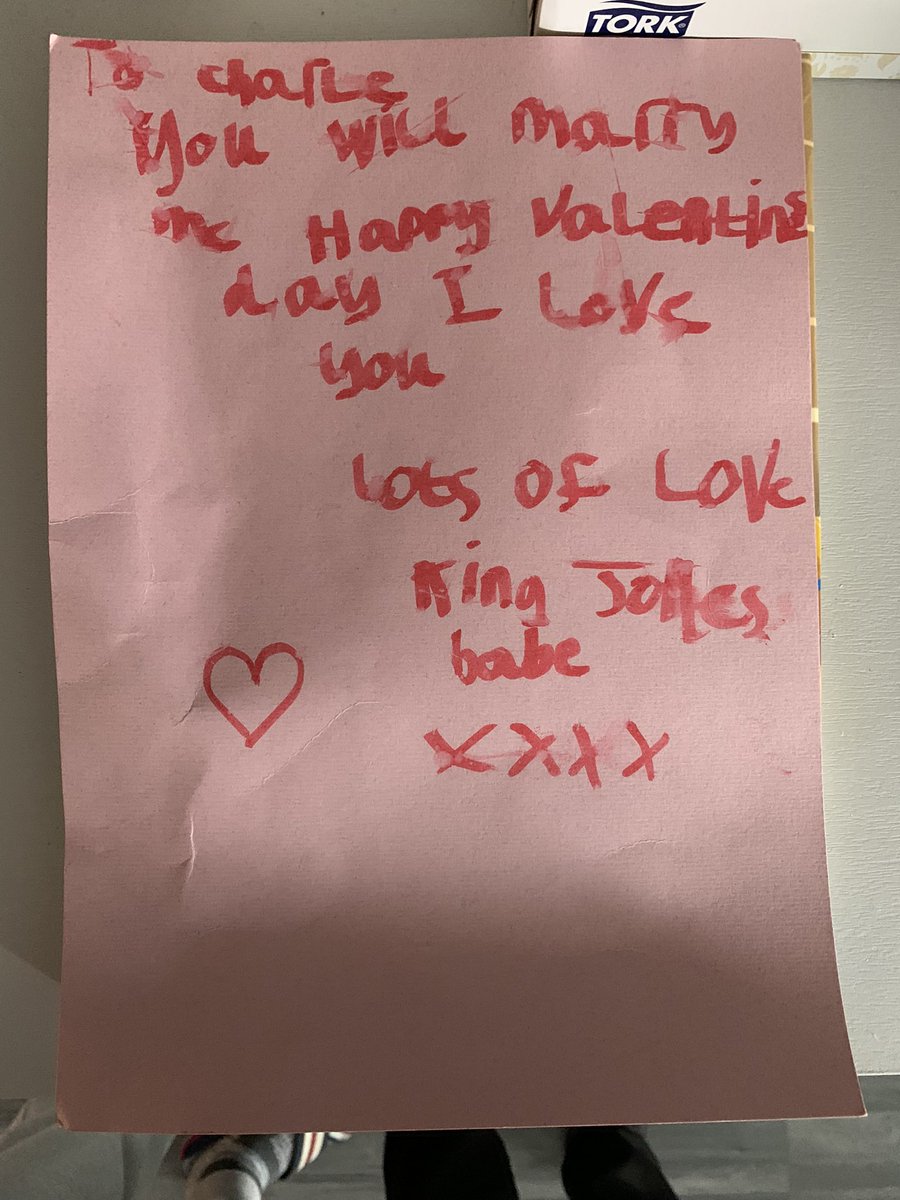 TORK
To charle
you will marry
me Happy Valentins
day I Love
you
Lots of Love
King
babe
xxxx